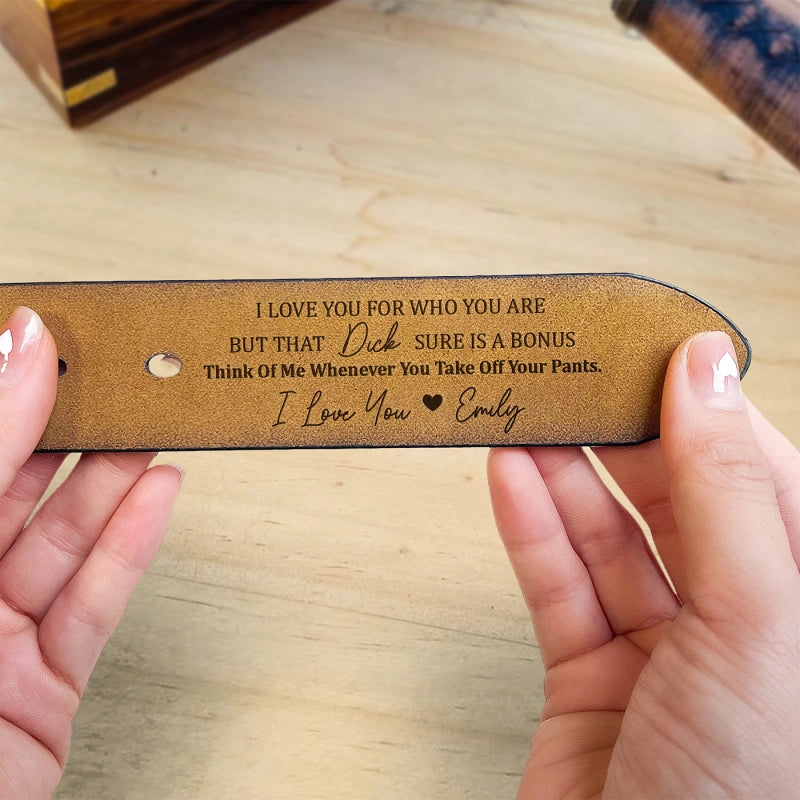 I LOVE YOU FOR WHO YOU ARE
BUT THAT Dick SURE IS A BONUS
Think Of Me Whenever You Take Off Your Pants.
I Love You ♥ Emily